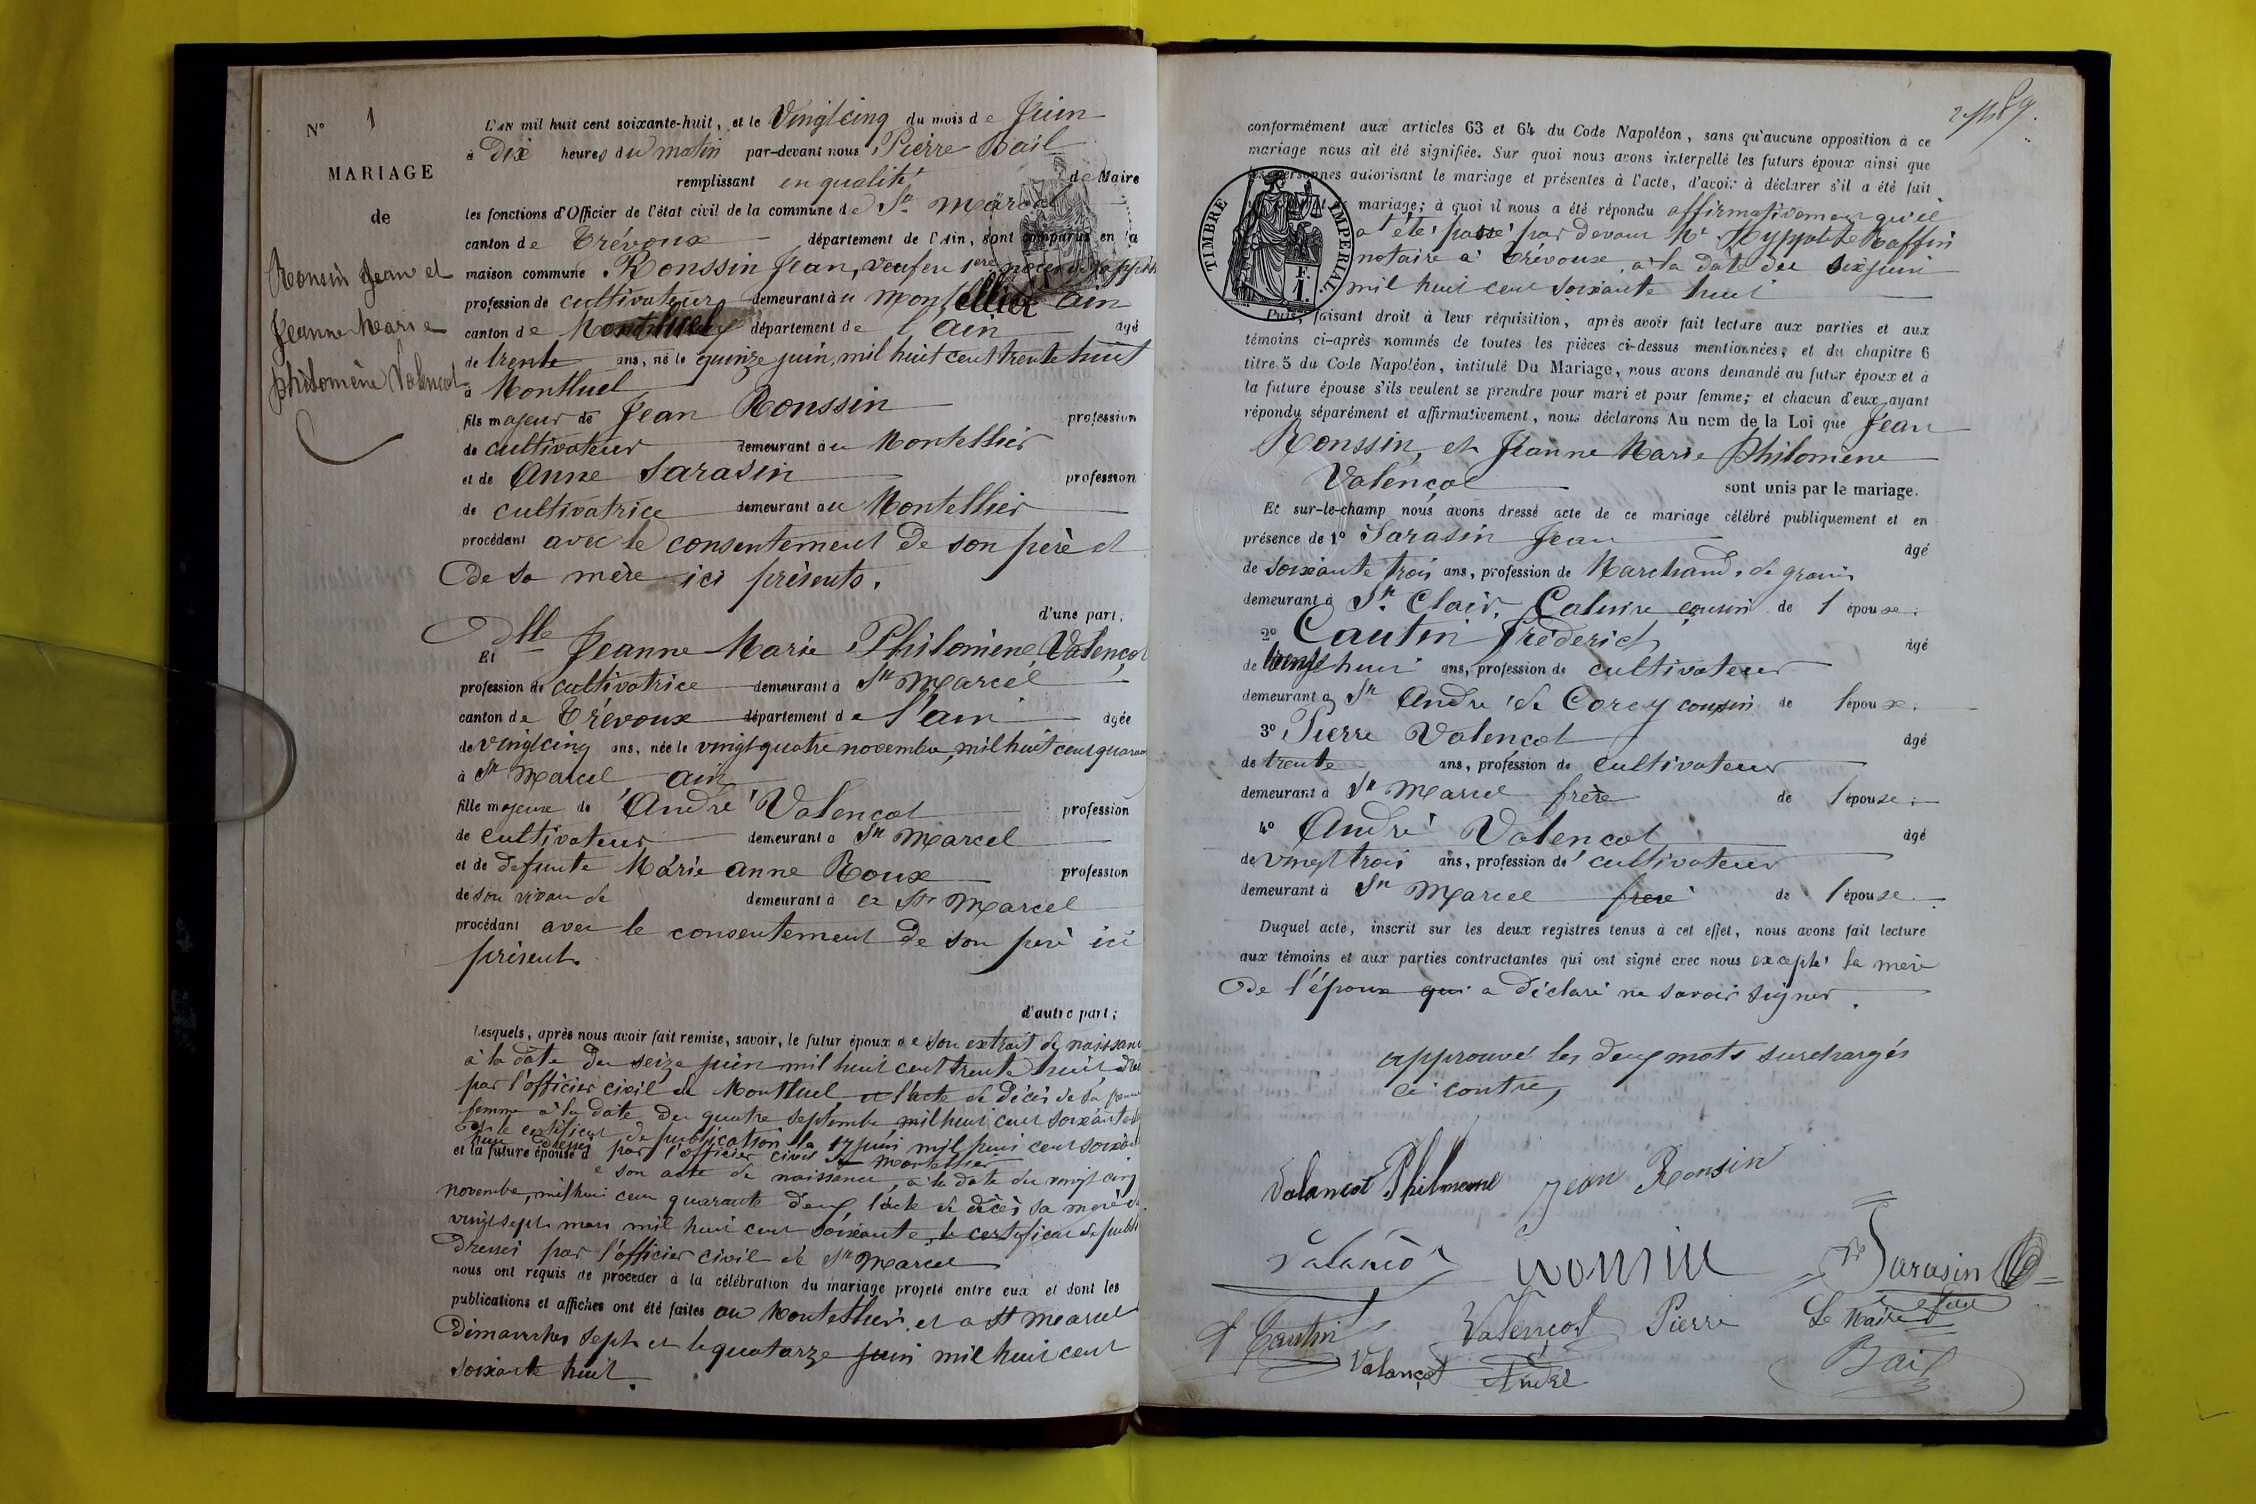 N° 1
MARIAGE
de
Ronsin Jean et
Jeanne Marie
philomène Valençot
L'AN mil huit cent soixante-huit, et le Vingt cinq du mois de Juin
à Dix heures du matin par-devant nous Pierre Bail
remplissant en qualité de Maire
les fonctions d'Officier de l'état civil de la commune de St Marcel
canton de Trévoux département de l'Ain, sont comparus en la
maison commune Ronssin Jean, veuf en 1ere noces de
profession de cultivateur demeurant à u Montellier ain
canton de Montluel département de l'ain âgé
de trente ans, né le quinze juin, mil huit cent trente huit
à Montluel
fils majeur de Jean Ronssin profession
de cultivateur demeurant au Montellier
et de Anne Sarasin profession
de cultivatrice demeurant au Montellier
procédant avec le consentement de son père et
De sa mère ici présents.
d'une part;
Et Dlle Jeanne Marie Philomène Valençot
profession de cultivatrice demeurant à St Marcel
canton de Trévoux département de l'ain âgée
de vingt cinq ans, née le vingt quatre novembre, mil huit cent quaran
à St Marcel ain
fille majeure de André Valençot profession
de cultivateur demeurant à St Marcel
et de defunte Marie anne Roux profession
de son vivant de demeurant à a St Marcel
procédant avec le consentement de son père ici
présent.
d'autre part;
Lesquels, après nous avoir fait remise, savoir, le futur époux de son extrait de naissance
à la date du seize juin mil huit cent trente huit
par l'officier civil de Montluel et l'acte de décès de sa
femme à la date du quatre septembre mil huit cent soixante
et le certificat de publication la 17 juin mil huit cent soixan
huit dressé par l'officier civil de Montellier
et la future épouse de son acte de naissance, à la date du vingt cinq
novembre, mil huit cent quarante deux, l'acte de décès sa mère
vingt sept mars mil huit cent soixante, le certificat de publi
dressés par l'officier civil de St Marcel
nous ont requis de procéder à la célébration du mariage projeté entre eux et dont les
publications et affiches ont été faites au Montellier et a St Marcel
Dimanches sept et le quatorze juin mil huit cent
soixante huit.
conformément aux articles 63 et 64 du Code Napoléon, sans qu'aucune opposition à ce
mariage nous ait été signifiée. Sur quoi nous avons interpellé les futurs époux ainsi que
les personnes autorisant le mariage et présentes à l'acte, d'avoir à déclarer s'il a été fait
mariage; à quoi il nous a été répondu affirmativement qu'il
a été passé par devant Me Hyppolite Raffin
notaire à Trévoux, à la date du six juin
mil huit cent soixante huit
TIMBRE IMPERIAL
1 F.
Puis, faisant droit à leur réquisition, après avoir fait lecture aux parties et aux
témoins ci-après nommés de toutes les pièces ci-dessus mentionnées; et du chapitre 6
titre 5 du Code Napoléon, intitulé Du Mariage, nous avons demandé au futur époux et à
la future épouse s'ils veulent se prendre pour mari et pour femme; et chacun d'eux ayant
répondu séparément et affirmativement, nous déclarons Au nom de la Loi que Jean
Ronssin, et Jeanne Marie Philomène
Valençot sont unis par le mariage.
Et sur-le-champ nous avons dressé acte de ce mariage célébré publiquement et en
présence de 1° Sarasin Jean âgé
de soixante trois ans, profession de Marchand de grains
demeurant à St Clair, Caluire cousin de l'épouse;
2° Cautin Fréderich âgé
de trente huit ans, profession de cultivateur
demeurant à St André de Corcy cousin de l'épouse;
3° Pierre Valençot âgé
de trente ans, profession de cultivateur
demeurant à St Marcel frère de l'épouse;
4° André Valençot âgé
de vingt trois ans, profession de cultivateur
demeurant à St Marcel frère de l'épouse.
Duquel acte, inscrit sur les deux registres tenus à cet effet, nous avons fait lecture
aux témoins et aux parties contractantes qui ont signé avec nous excepté la mère
De l'époux qui a déclaré ne savoir signer.
approuvé les deux mots surchargés
ci contre,
Valancot Philomene Jean Ronsin
Valanco ronsin Sarasin
f Cautin Valençot Pierre Le Maire
Valançot André Bail